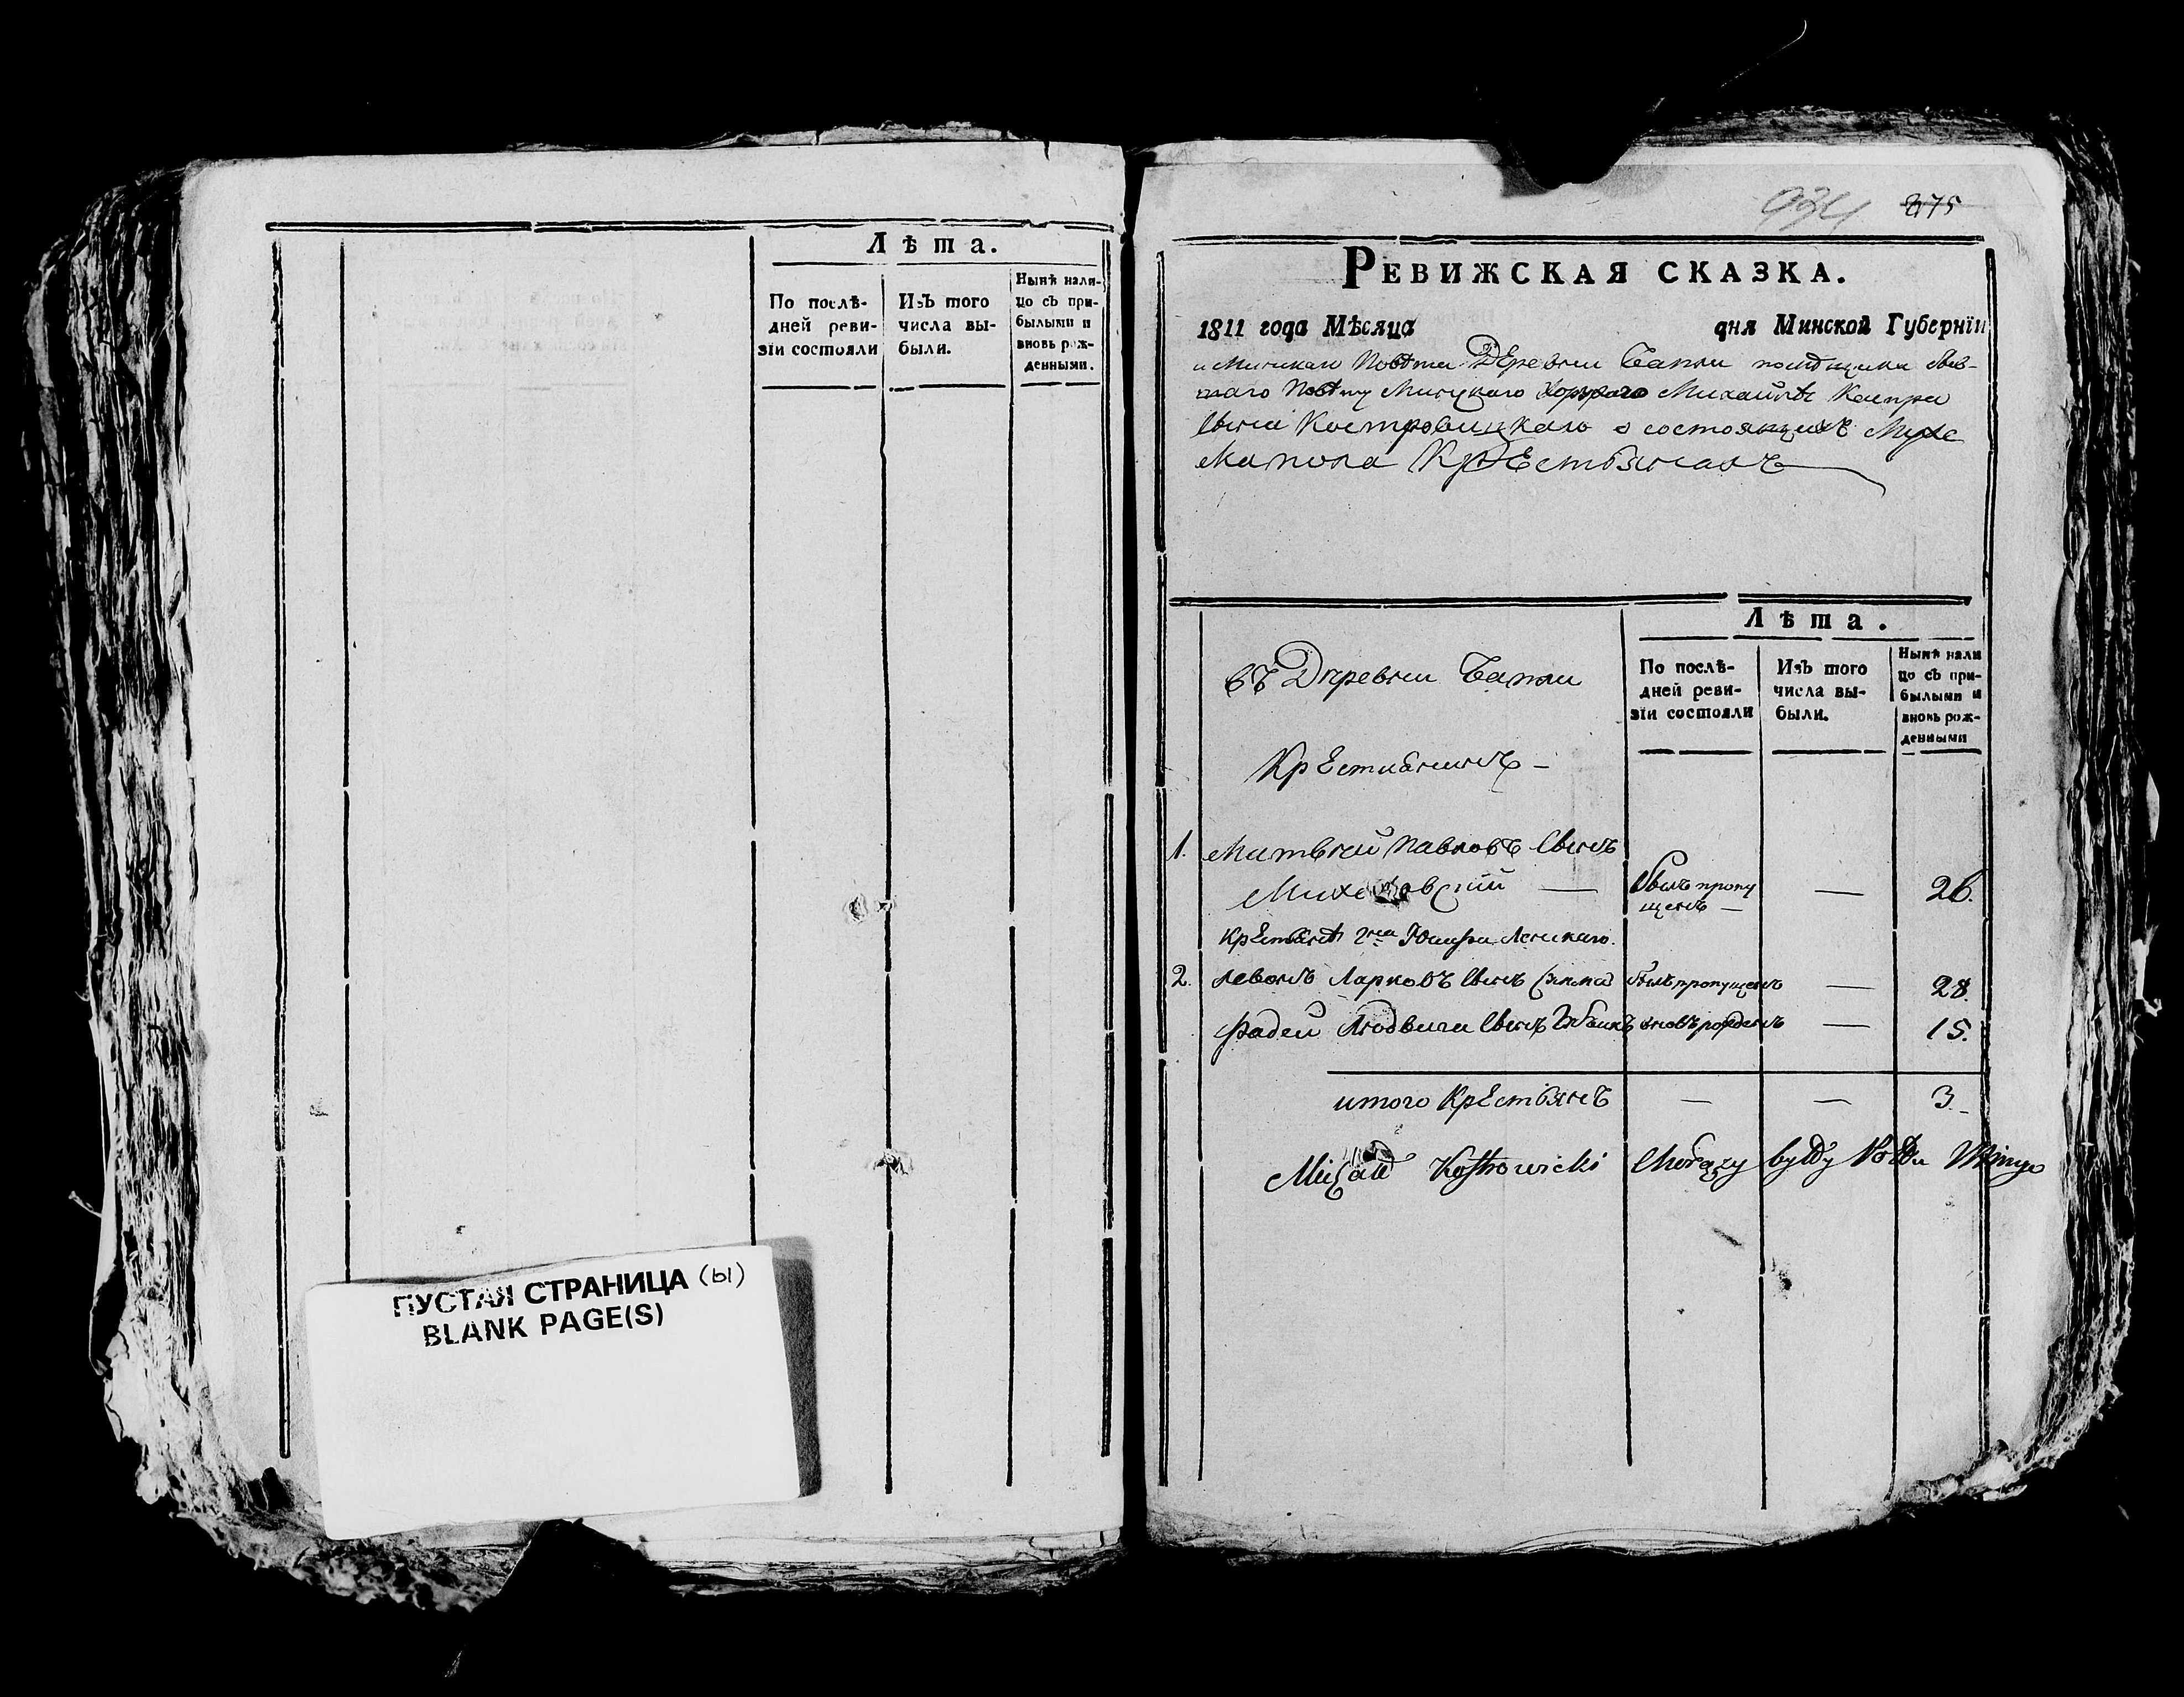 Лѣта.
По послѣ-
дней реви-
зіи состояли
Изъ того
числа вы-
были.
Нынѣ нали-
цо съ при-
былыми и
вновь рож-
денными.
ПУСТАЯ СТРАНИЦА (ы)
BLANK PAGE(S)
934 875
РЕВИЖСКАЯ СКАЗКА.
1811 года Мѣсяца дня Минской Губерніи
и Минскаго Повѣта Деревни помѣщика быв-
шаго Повѣту Минскаго Хорунжаго Михаила
Сына Костровицкаго о состоящихъ Мужс
Крестьянахъ
Лѣта.
По послѣ-
дней реви-
зіи состояли
Изъ того
числа вы-
были.
Нынѣ нали
цо съ при-
былыми и
вновь рож-
денными
Въ Деревни
Крестьянинъ —
1. Матвей Павловъ Сынъ
— былъ пропу — 26.
щенъ —
2. Левонъ Марковъ Сынъ былъ пропущенъ — 28.
Фадей Людвига Сынъ вновь рожденъ — 15.
итого Крестьянъ — — 3.
Michał Kostrowicki Chorąży były